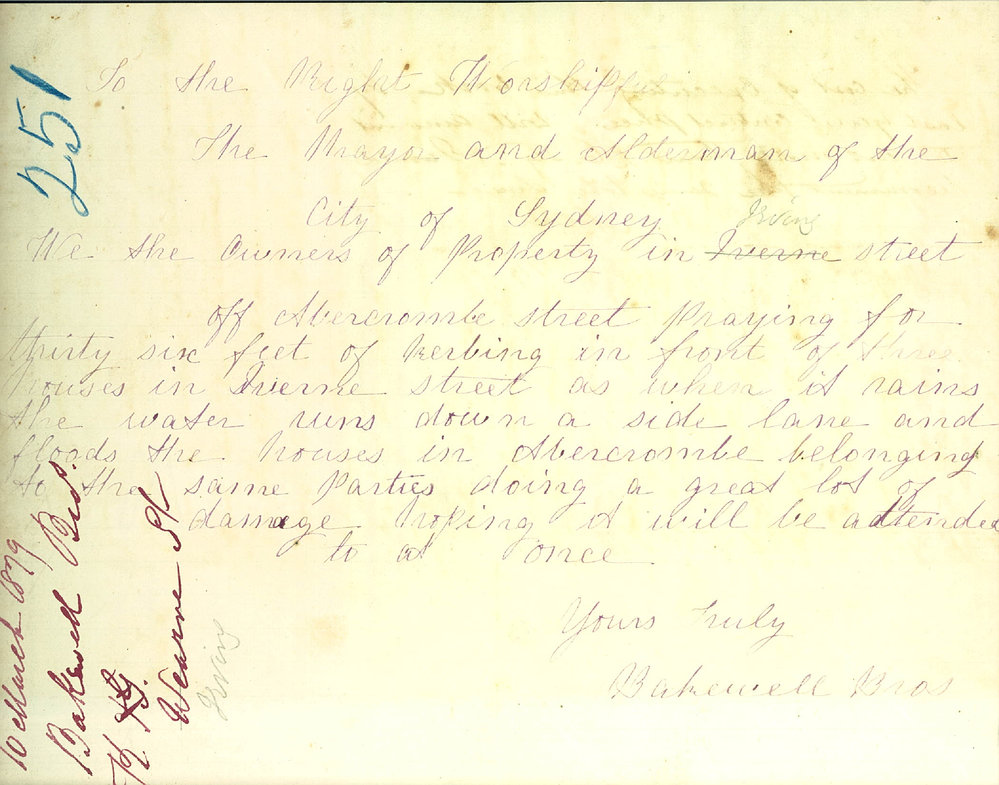 251
To the Right Worshipful
The Mayor and Alderman of the
City of Sydney
Irving
We the Owners of Property in Iverne street
off Abercrombe street Praying for
thirty six feet of Kerbing in front of three
houses in Iverne street as when it rains
the water runs down a side lane and
floods the houses in Abercrombe belonging
to the same Parties doing a great lot of
damage hoping it will be attended
to at once
Yours Truly
Bakewell Bros
10 March 1879
Bakewell Bros.
Wearne St
Irving